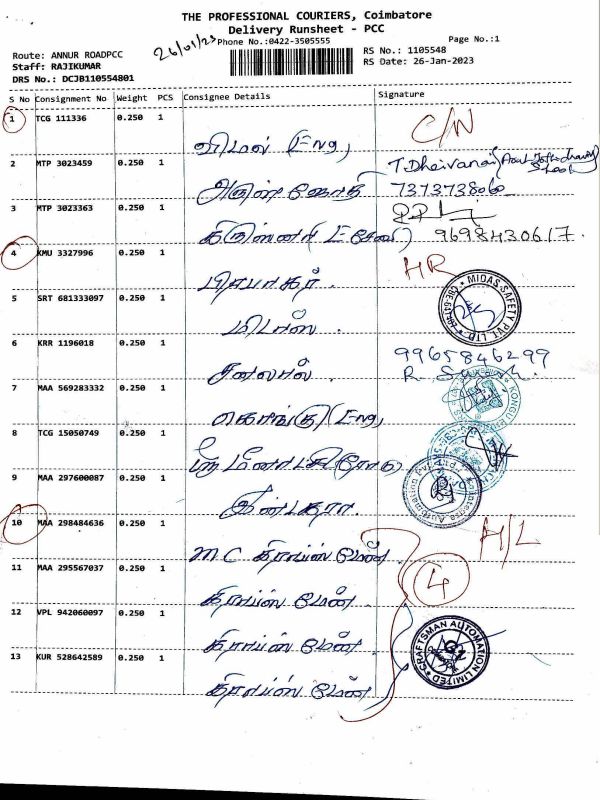 THE PROFESSIONAL COURIERS, Coimbatore
Delivery Runsheet - PCC
26/01/23
Phone No.:0422-3505555
Page No.:1
Route: ANNUR ROADPCC
Staff: RAJIKUMAR
DRS No.: DCJB110554801
RS No.: 1105548
RS Date: 26-Jan-2023
S No Consignment No Weight PCS Consignee Details Signature
1 TCG 111336 0.250 1 C/N
விமல் (Eng,
2 MTP 3023459 0.250 1 T. Dheivanai
அருள் ஜோதி 7373738060
3 MTP 3023363 0.250 1
கிருஸ்ணா (E சேவை) 9698430617.
4 KMU 3327996 0.250 1 HR
பிரபாகர்
5 SRT 681333097 0.250 1 MIDAS SAFETY PVT LTD
மிடாஸ்
6 KRR 1196018 0.250 1
9965846299
7 MAA 569283332 0.250 1
கொங்கு (Eng,
8 TCG 15050749 0.250 1
ஸ்ரீ மீனாட்சி
9 MAA 297600087 0.250 1
10 MAA 298484636 0.250 1 H/L
MC கிராப்ஸ் மேன்
11 MAA 295567037 0.250 1 4
கிராப்ஸ் மேன்
12 VPL 942060097 0.250 1 CRAFTSMAN AUTOMATION LIMITED
கிராப்ஸ் மேன்
13 KUR 528642589 0.250 1
கிராப்ஸ் மேன்